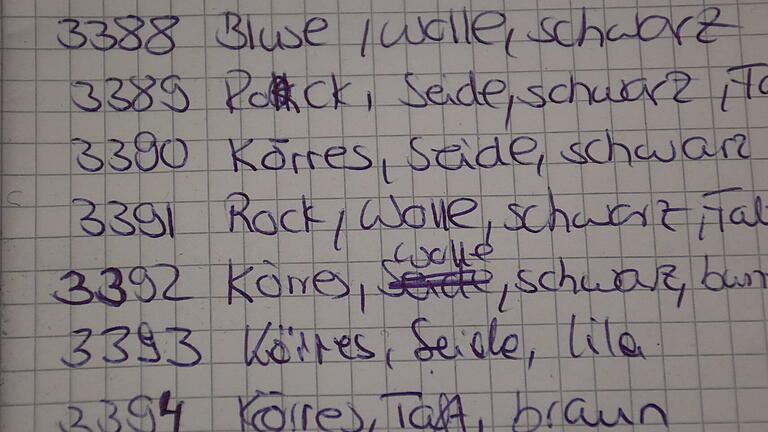 3388 Bluse, Wolle, schwarz
3389 Rock, Seide, schwarz, Ta
3390 Körres, Seide, schwarz
3391 Rock, Wolle, schwarz, Taf
3392 Körres, Wolle, schwarz, bun
3393 Körres, Seide, lila
3394 Körres, Taft, braun